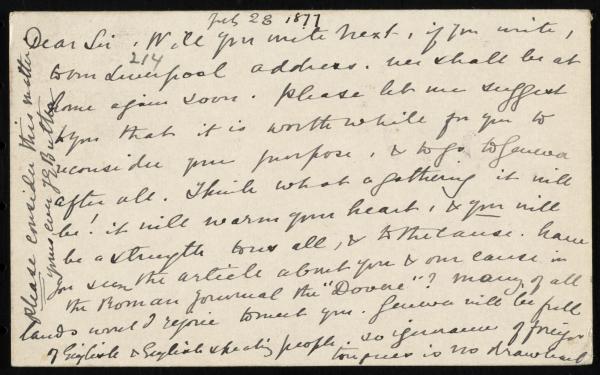 Feb 28 1877
Dear Sir, Will you write next, if you write,
to our Liverpool address. we shall be at
214
home again soon. Please let me suggest
to you that it is worth while for you to
reconsider your purpose, & to go to Geneva
after all. Think what a gathering it will
be! it will warm your heart, & you will
be a strength to us all, & to the cause. have
you seen the article about you & our cause in
the Roman Journal the "Dovere"? many of all
lands would rejoice to meet you. Geneva will be full
of English & English speaking people. so ignorance of foreign
tongues is no drawback
Please consider this matter
yours ever J E Butler